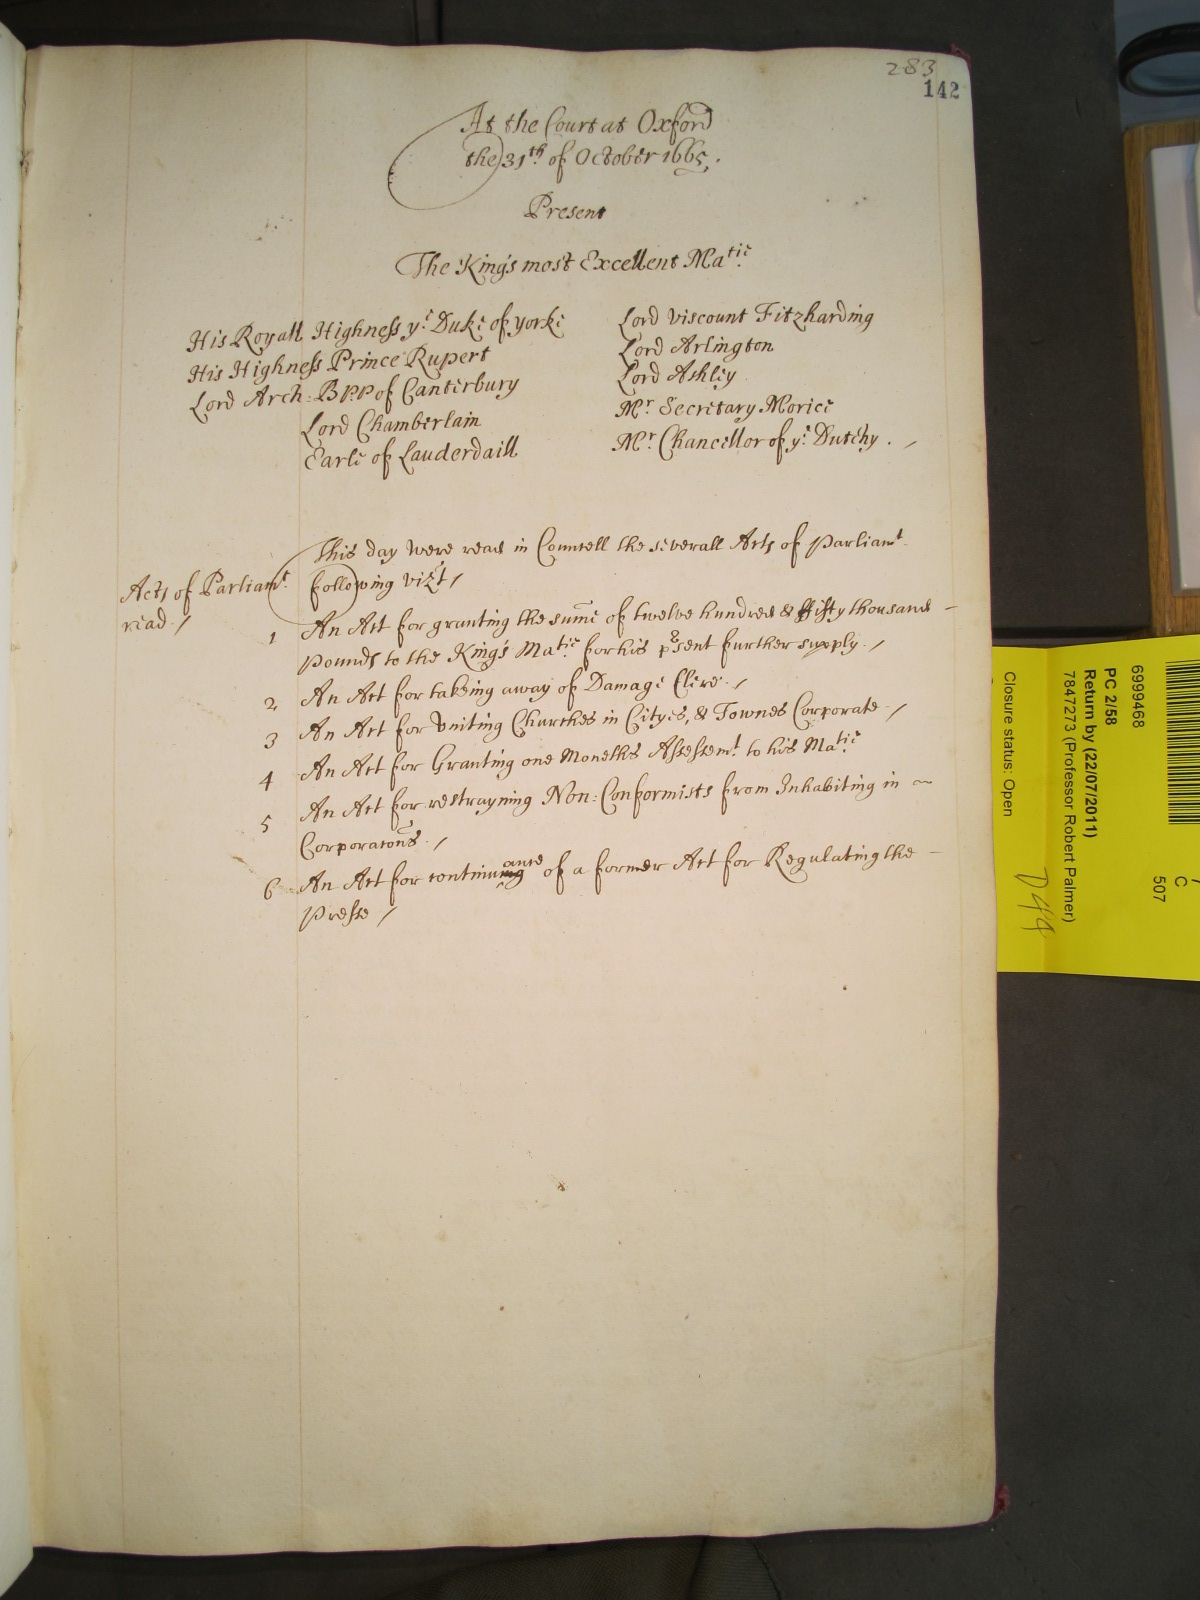 283
142
At the Court at Oxford
the 31th. of October 1665.
Present
The Kings most Excellent Matie.
His Royall Highness ye Duke of yorke
His Highness Prince Rupert
Lord Arch: Bpp of Canterbury
Lord Chamberlain
Earle of Lauderdaill
Lord Viscount Fitzharding
Lord Arlington
Lord Ashley
Mr Secretary Morice
Mr. Chancellor of ye Dutchy.
This day were read in Councell the severall Acts of Parliamt.
following vizt /
Acts of Parliamt.
read /
1 An Act for granting the sume of twelve hundred & fifty thousand
pounds to the Kings Matie for his psent further supply. /
2 An Act for takeing away of Damage Clere. /
3 An Act for Vniting Churches in Cityes, & Townes Corporate /
4 An Act for Granting one Moneths Assessemt. to his Matie.
5 An Act for restrayning Non=Conformists from Inhabiting in
Corporatons. /
6 An Act for continuance of a former Act for Regulating the
Presse /
6999468
PC 2/58
Return by (22/07/2011)
7847273 (Professor Robert Palmer)
Closure status: Open
C
507
D44